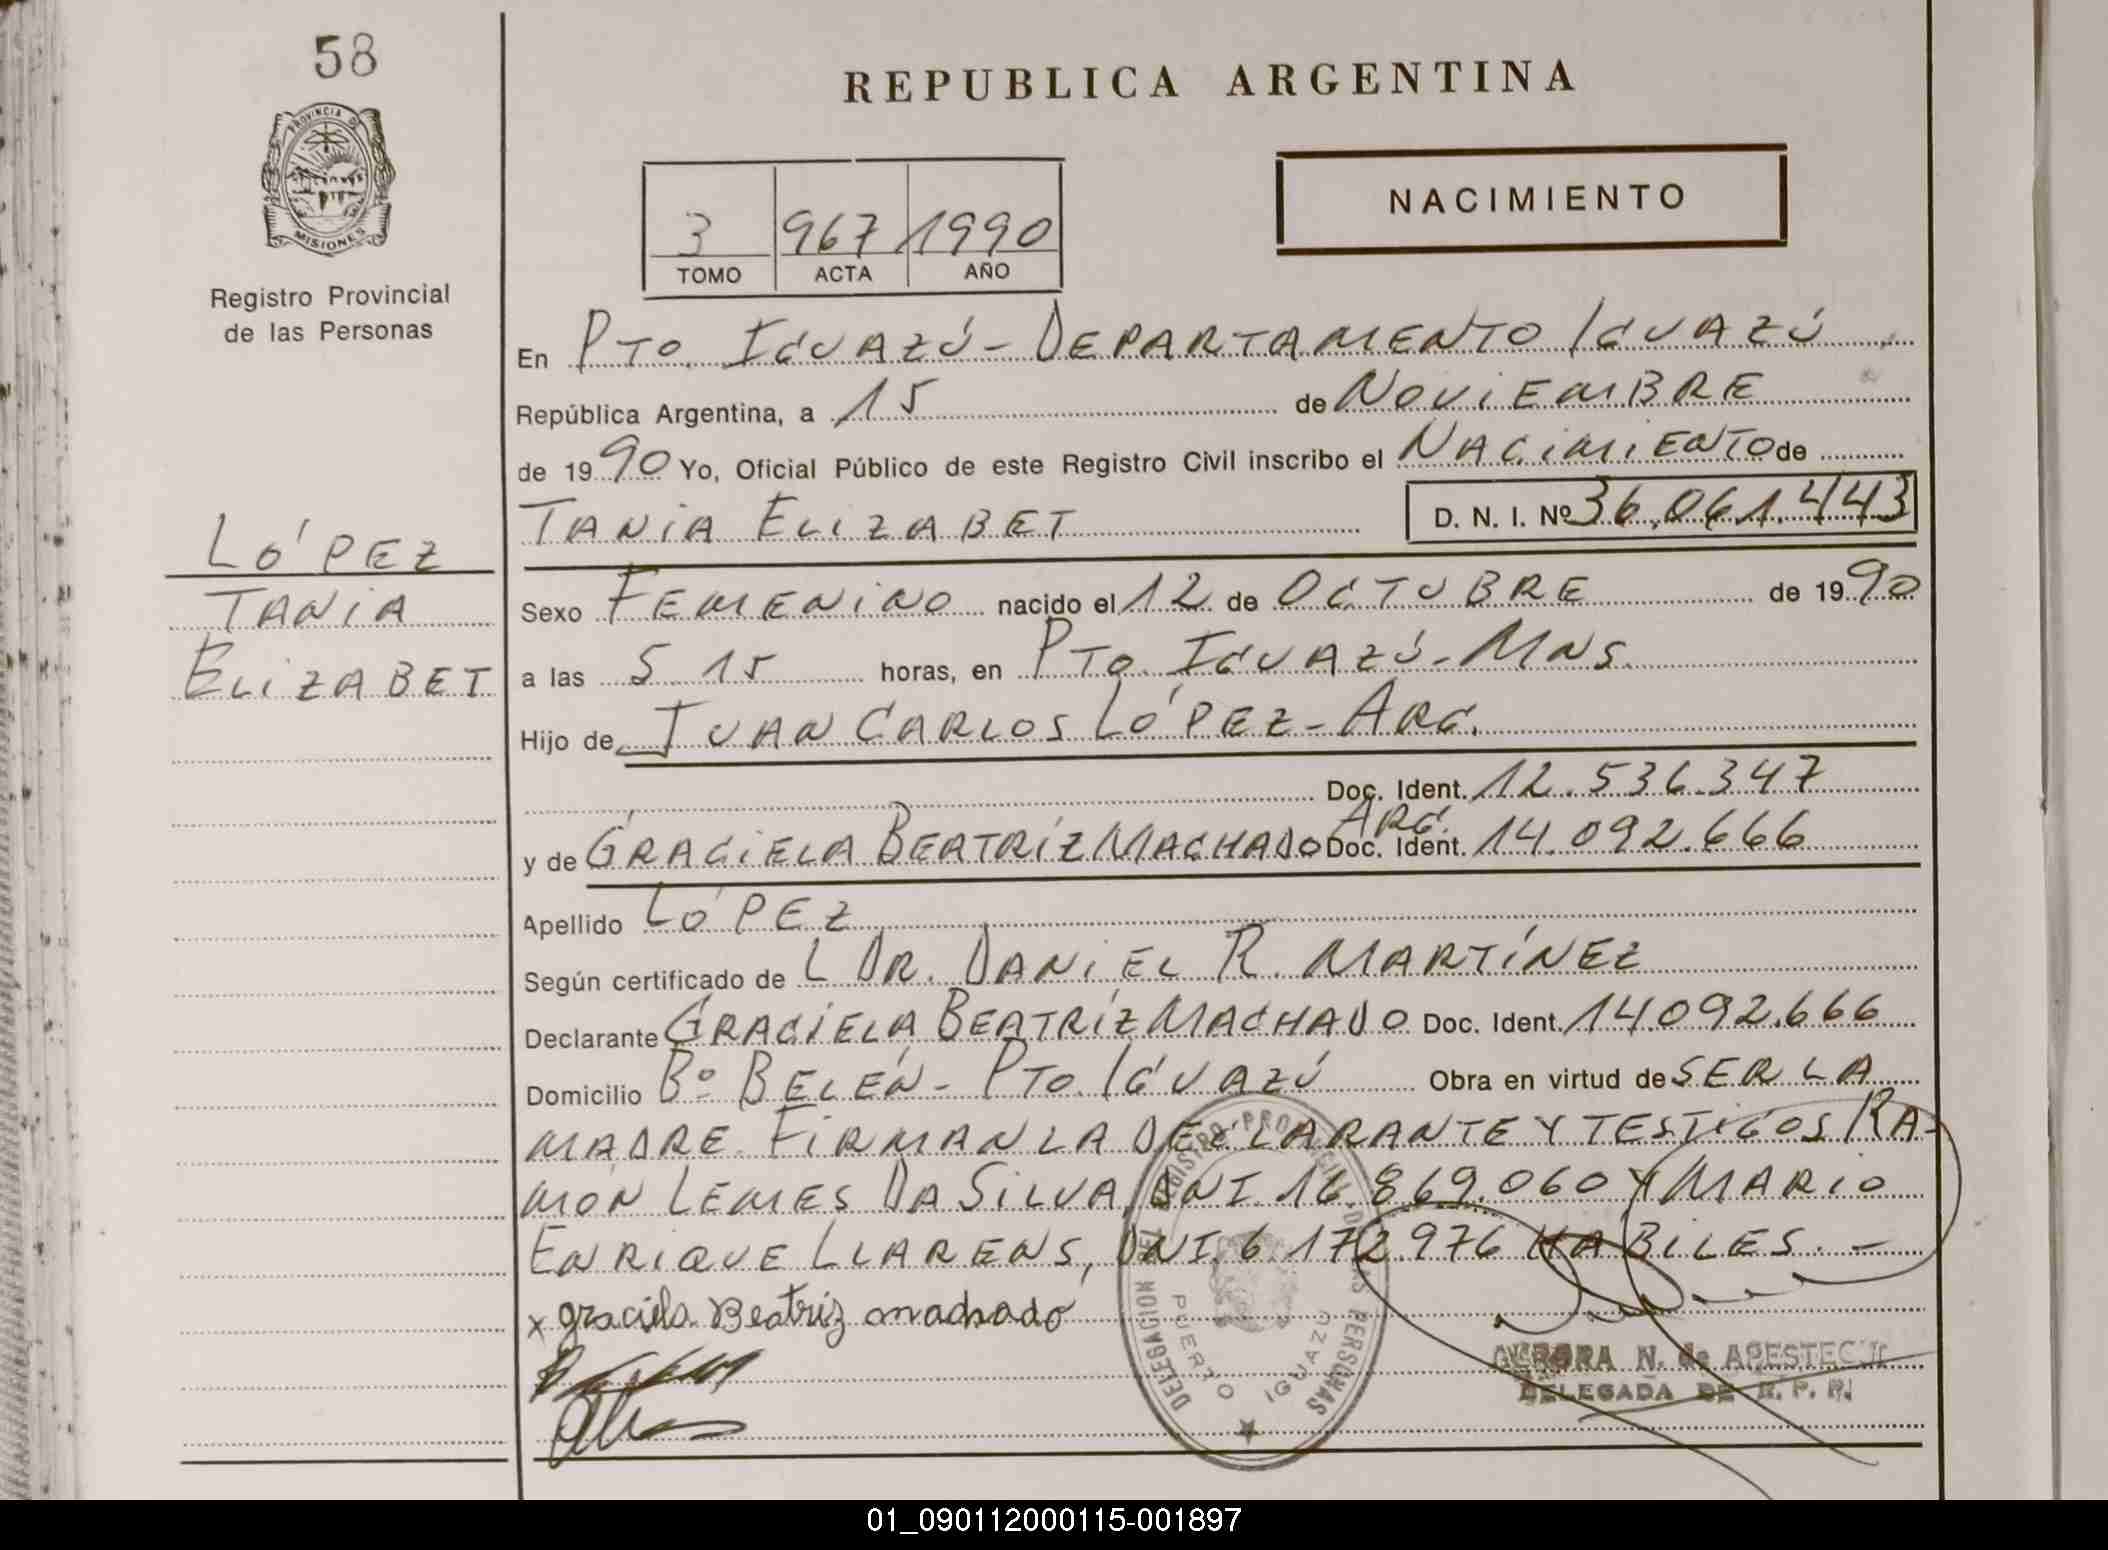 58
PROVINCIA DE
MISIONES
Registro Provincial
de las Personas
LÓPEZ
TANIA
ELIZABET
REPUBLICA ARGENTINA
3 967 1990
TOMO ACTA AÑO
NACIMIENTO
En PTO. IGUAZÚ - DEPARTAMENTO IGUAZÚ
República Argentina, a 15 de NOVIEMBRE
de 1990 Yo, Oficial Público de este Registro Civil inscribo el NACIMIENTO de
TANIA ELIZABET D. N. I. Nº 36.061.443
Sexo FEMENINO nacido el 12 de OCTUBRE de 1990
a las 5 15 horas, en PTO. IGUAZÚ - MNS.
Hijo de JUAN CARLOS LÓPEZ - ARG.
Doc. Ident. 12.536.347
ARG.
y de GRACIELA BEATRÍZ MACHADO Doc. Ident. 14.092.666
Apellido LÓPEZ
Según certificado de L DR. DANIEL R. MARTÍNEZ
Declarante GRACIELA BEATRÍZ MACHADO Doc. Ident. 14.092.666
Domicilio Bº BELÉN - PTO. IGUAZÚ Obra en virtud de SER LA
MADRE. FIRMAN LA DECLARANTE Y TESTIGOS RA-
MÓN LEMES DA SILVA, DNI. 16.869.060 Y MARIO
ENRIQUE LLARENS, DNI. 6.172.976 HABILES. -
x graciela Beatriz machado
DELEGACION DEL REGISTRO PROVINCIAL DE LAS PERSONAS
PUERTO IGUAZU
AURORA N. de APESTEGUI
DELEGADA DE R. P. P.
01_090112000115-001897